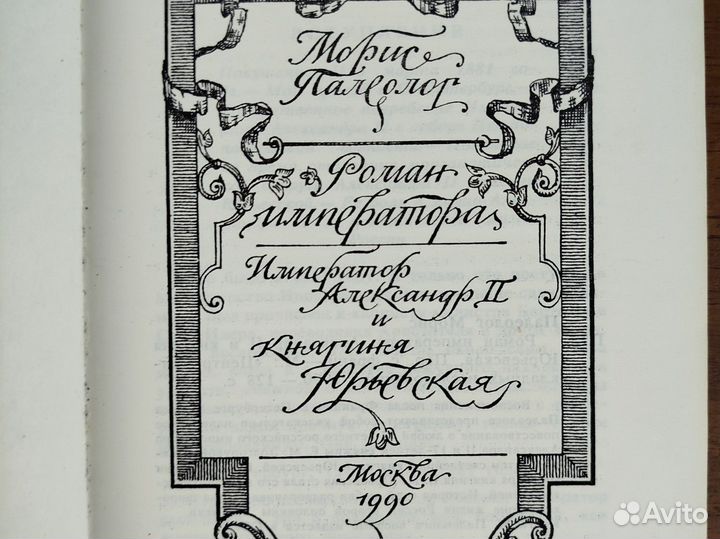 Морис
Палеолог
Роман
императора
Император
Александр II
и
Княгиня
Юрьевская
Москва
1990
Avito